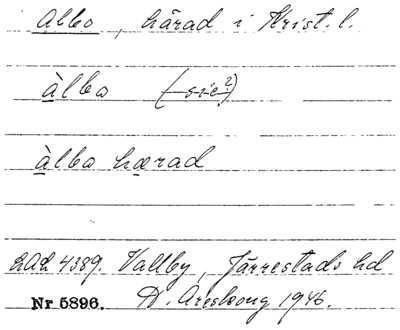 Albo, härad i Krist. l.
àlbo (sic?)
àlbo hærad
LAL 4389. Vallby, Järrestads hd
Nr 5896. D. Areskoug 1946.